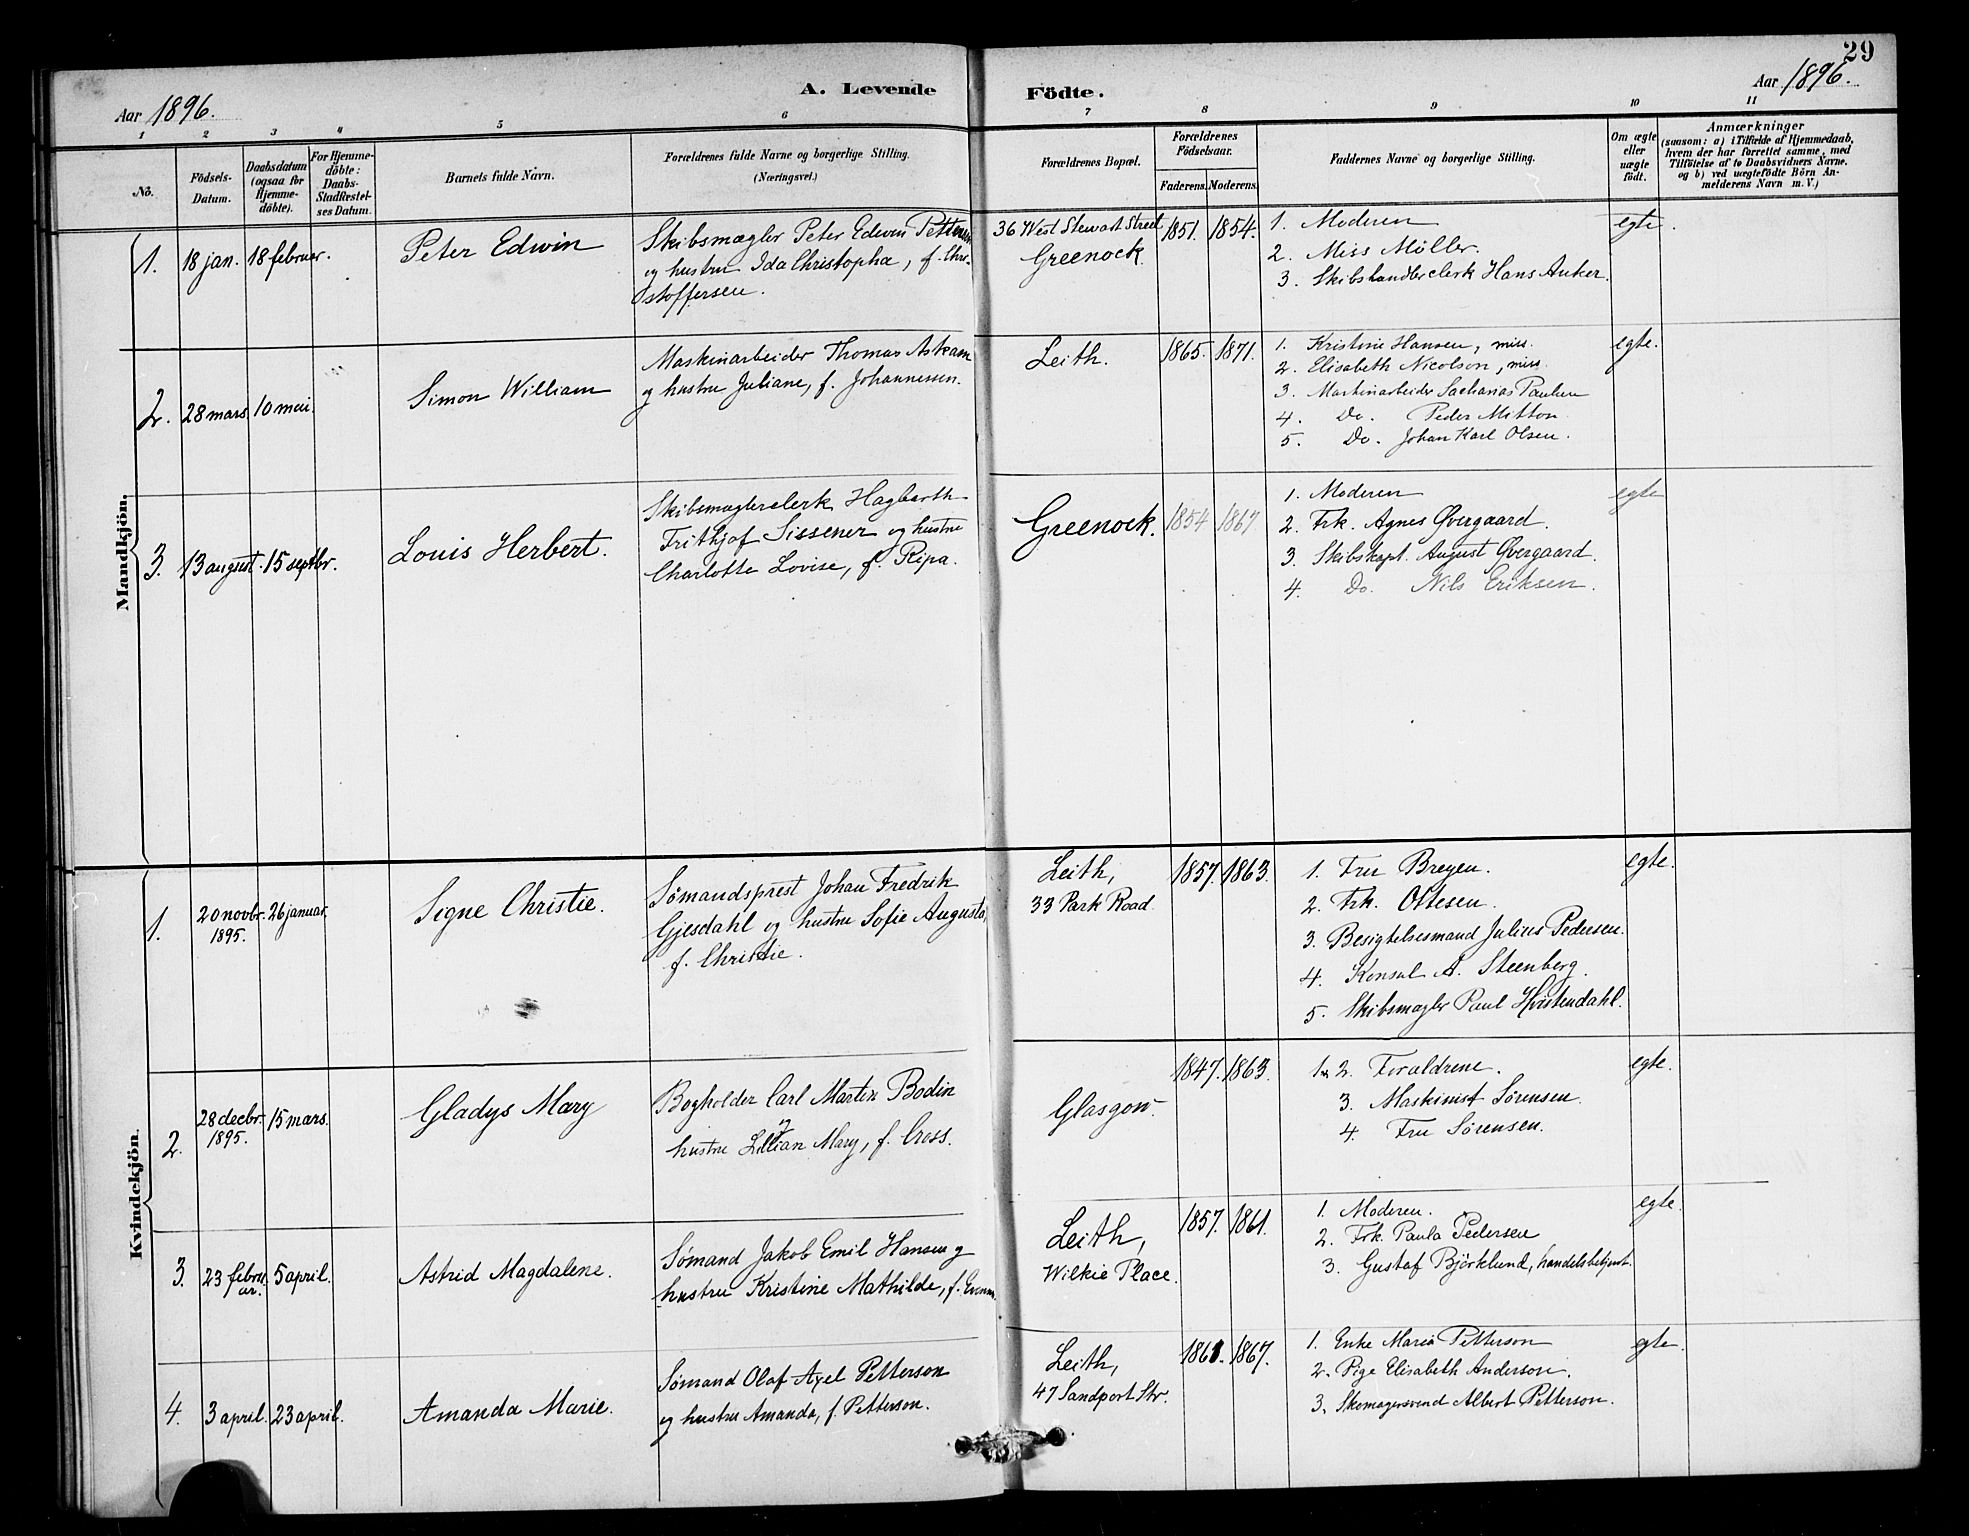 29
A. Levende Födte.
Aar 1896.
Aar 1896.
1 2 3 4 5 6 7 8 9 10 11
No.
Födsels-Datum.
Daabsdatum (ogsaa for Hjemme-döbte).
For Hjemme-döbte: Daabs-Stadfæstel-ses Datum.
Barnets fulde Navn.
Forældrenes fulde Navne og borgerlige Stilling. (Næringsvei.)
Forældrenes Bopæl.
Forældrenes Födselsaar.
Faderens. Moderens.
Faddernes Navne og borgerlige Stilling.
Om ægte eller uægte födt.
Anmærkninger
(saasom: a) i Tilfælde af Hjemmedaab,
hvem der har forrettet samme, med
Tilföielse af to Daabsvidners Navne.
og b) ved uægtefödte Börn An-
melderens Navn m. V.)
Mandkjön.
1. 18 jan. 18 februar. Peter Edwin
Skibsmægler Peter Edwin Pettersen
og hustru Ida Christopha, f. Chri-
stoffersen.
36 West Stewart Street
Greenock.
1851. 1854.
1. Moderen
2. Miss Møller.
3. Skibshandlerclerk Hans Anker.
egte.
2. 28 mars 10 mai. Simon William
Maskinarbeider Thomas Askam
og hustru Juliane, f. Johannessen.
Leith.
1865. 1871.
1. Kristine Hansen, miss.
2. Elisabeth Nicolson, miss.
3. Maskinarbeider Sacharias Paulsen
4. Do. Peder Mitton
5. Do. Johan Karl Olsen.
egte.
3. 13 august. 15 septbr. Louis Herbert.
Skibsmæglerclerk Hagbarth
Frithjof Sissener og hustru
Charlotte Lovise, f. Ripa.
Greenock.
1854 1867
1. Moderen
2. Frk. Agnes Øvergaard.
3. Skibskapt. August Øvergaard.
4. Do. Nils Eriksen.
egte
Kvindekjön.
1. 20 novbr. 1895. 26 januar. Signe Christie.
Sømandsprest Johan Fredrik
Gjesdahl og hustru Sofie Augusta,
f. Christie.
Leith,
33 Park Road
1857. 1863.
1. Fru Breyen.
2. Frk. Ottesen.
3. Besigtelsesmand Julius Pedersen.
4. Konsul A. Steenberg.
5. Skibsmægler Paul Hvistendahl.
egte.
2. 28 decbr. 1895. 15 mars. Gladys Mary
Bogholder Carl Martin Bodin
og
hustru Lillian Mary, f. Cross.
Glasgow.
1847. 1863.
1 & 2. Forældrene.
3. Maskinist Sørensen.
4. Fru Sørensen.
egte.
3. 23 februar. 5 april. Astrid Magdalene.
Sømand Jakob Emil Hansen og
hustru Kristine Mathilde, f.
Leith,
Wilkie Place.
1857. 1861.
1. Moderen.
2. Frk. Paula Pedersen
3. Gustaf Björklund, handelsbetjent.
egte.
4. 3 april. 23 april. Amanda Marie.
Sømand Olaf Axel Petterson
og hustru Amanda, f. Petterson.
Leith,
47 Sandport Str.
1861. 1867.
1. Enke Maria Petterson
2. Pige Elisabeth Anderson.
3. Skomagersvend Albert Petterson.
egte.